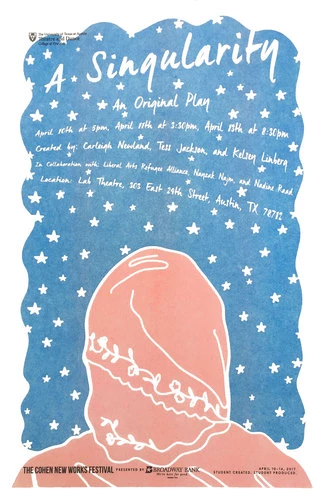 The University of Texas at Austin
Theatre and Dance
College of Fine Arts
A Singularity
An Original Play
April 10th at 5pm, April 11th at 3:30pm, April 13th at 8:30pm
Created by: Carleigh Newland, Tess Jackson, and Kelsey Linberg
In Collaboration with: Liberal Arts Refugee Alliance, and Nadine Raad
Location: Lab Theatre, 303 East 24th Street, Austin, TX 78782
THE COHEN NEW WORKS FESTIVAL PRESENTED BY BROADWAY BANK
We're here for good.
APRIL 10-14, 2017
STUDENT CREATED. STUDENT PRODUCED.